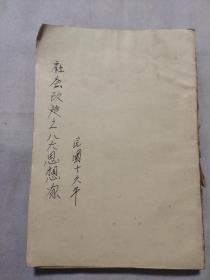 社会改造之八大思想家
民國十六年